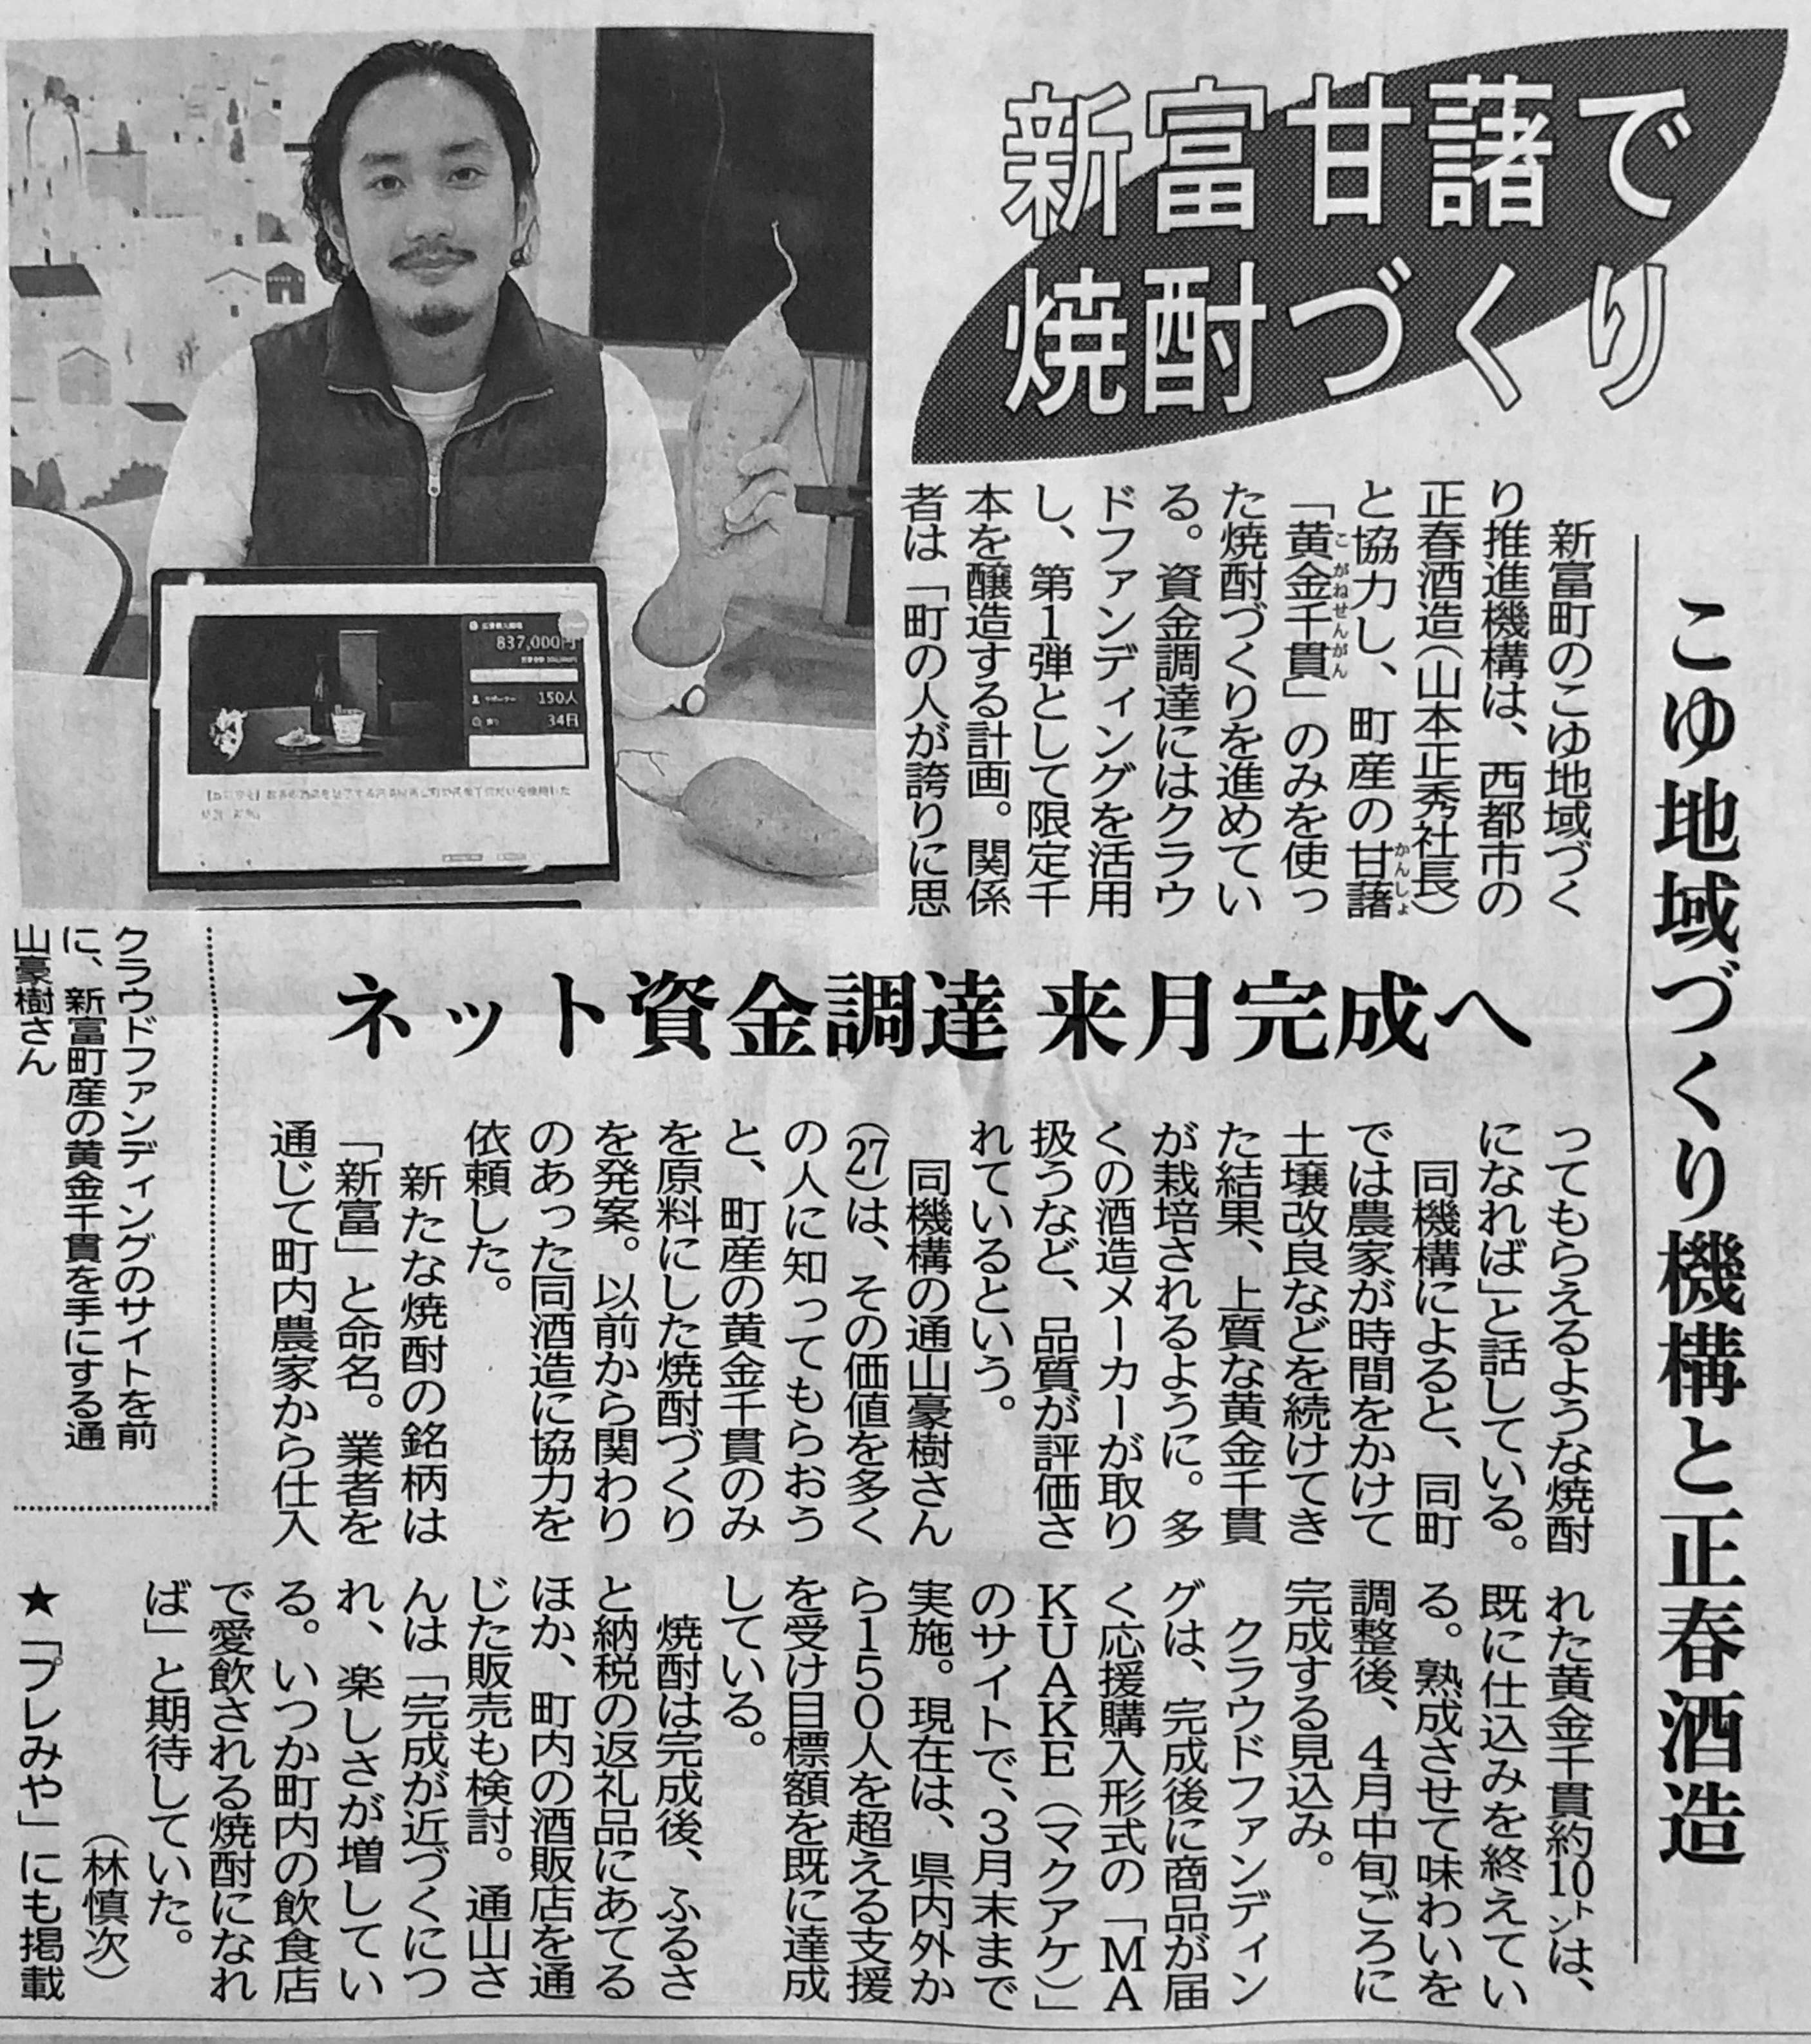 新富甘藷で
焼酎づくり
こゆ地域づくり機構と正春酒造
新富町のこゆ地域づく
り推進機構は、西都市の
正春酒造(山本正秀社長)
と協力し、町産の甘藷
かんしょ
「黄金千貫」のみを使っ
こがねせんがん
た焼酎づくりを進めてい
る。資金調達にはクラウ
ドファンディングを活用
し、第1弾として限定千
本を醸造する計画。関係
者は「町の人が誇りに思
ネット資金調達 来月完成へ
ってもらえるような焼酎
になれば」と話している。
同機構によると、同町
では農家が時間をかけて
土壌改良などを続けてき
た結果、上質な黄金千貫
が栽培されるように。多
くの酒造メーカーが取り
扱うなど、品質が評価さ
れているという。
同機構の通山豪樹さん
(27)は、その価値を多く
の人に知ってもらおう
と、町産の黄金千貫のみ
を原料にした焼酎づくり
を発案。以前から関わり
のあった同酒造に協力を
依頼した。
新たな焼酎の銘柄は
「新富」と命名。業者を
通じて町内農家から仕入
れた黄金千貫約10㌧は、
既に仕込みを終えてい
る。熟成させて味わいを
調整後、4月中旬ごろに
完成する見込み。
クラウドファンディン
グは、完成後に商品が届
く応援購入形式の「MA
KUAKE(マクアケ)」
のサイトで、3月末まで
実施。現在は、県内外か
ら150人を超える支援
を受け目標額を既に達成
している。
焼酎は完成後、ふるさ
と納税の返礼品にあてる
ほか、町内の酒販店を通
じた販売も検討。通山さ
んは「完成が近づくにつ
れ、楽しさが増してい
る。いつか町内の飲食店
で愛飲される焼酎になれ
ば」と期待していた。
(林慎次)
★「プレみや」にも掲載
クラウドファンディングのサイトを前
に、新富町産の黄金千貫を手にする通
山豪樹さん
837,000円
150人
34日